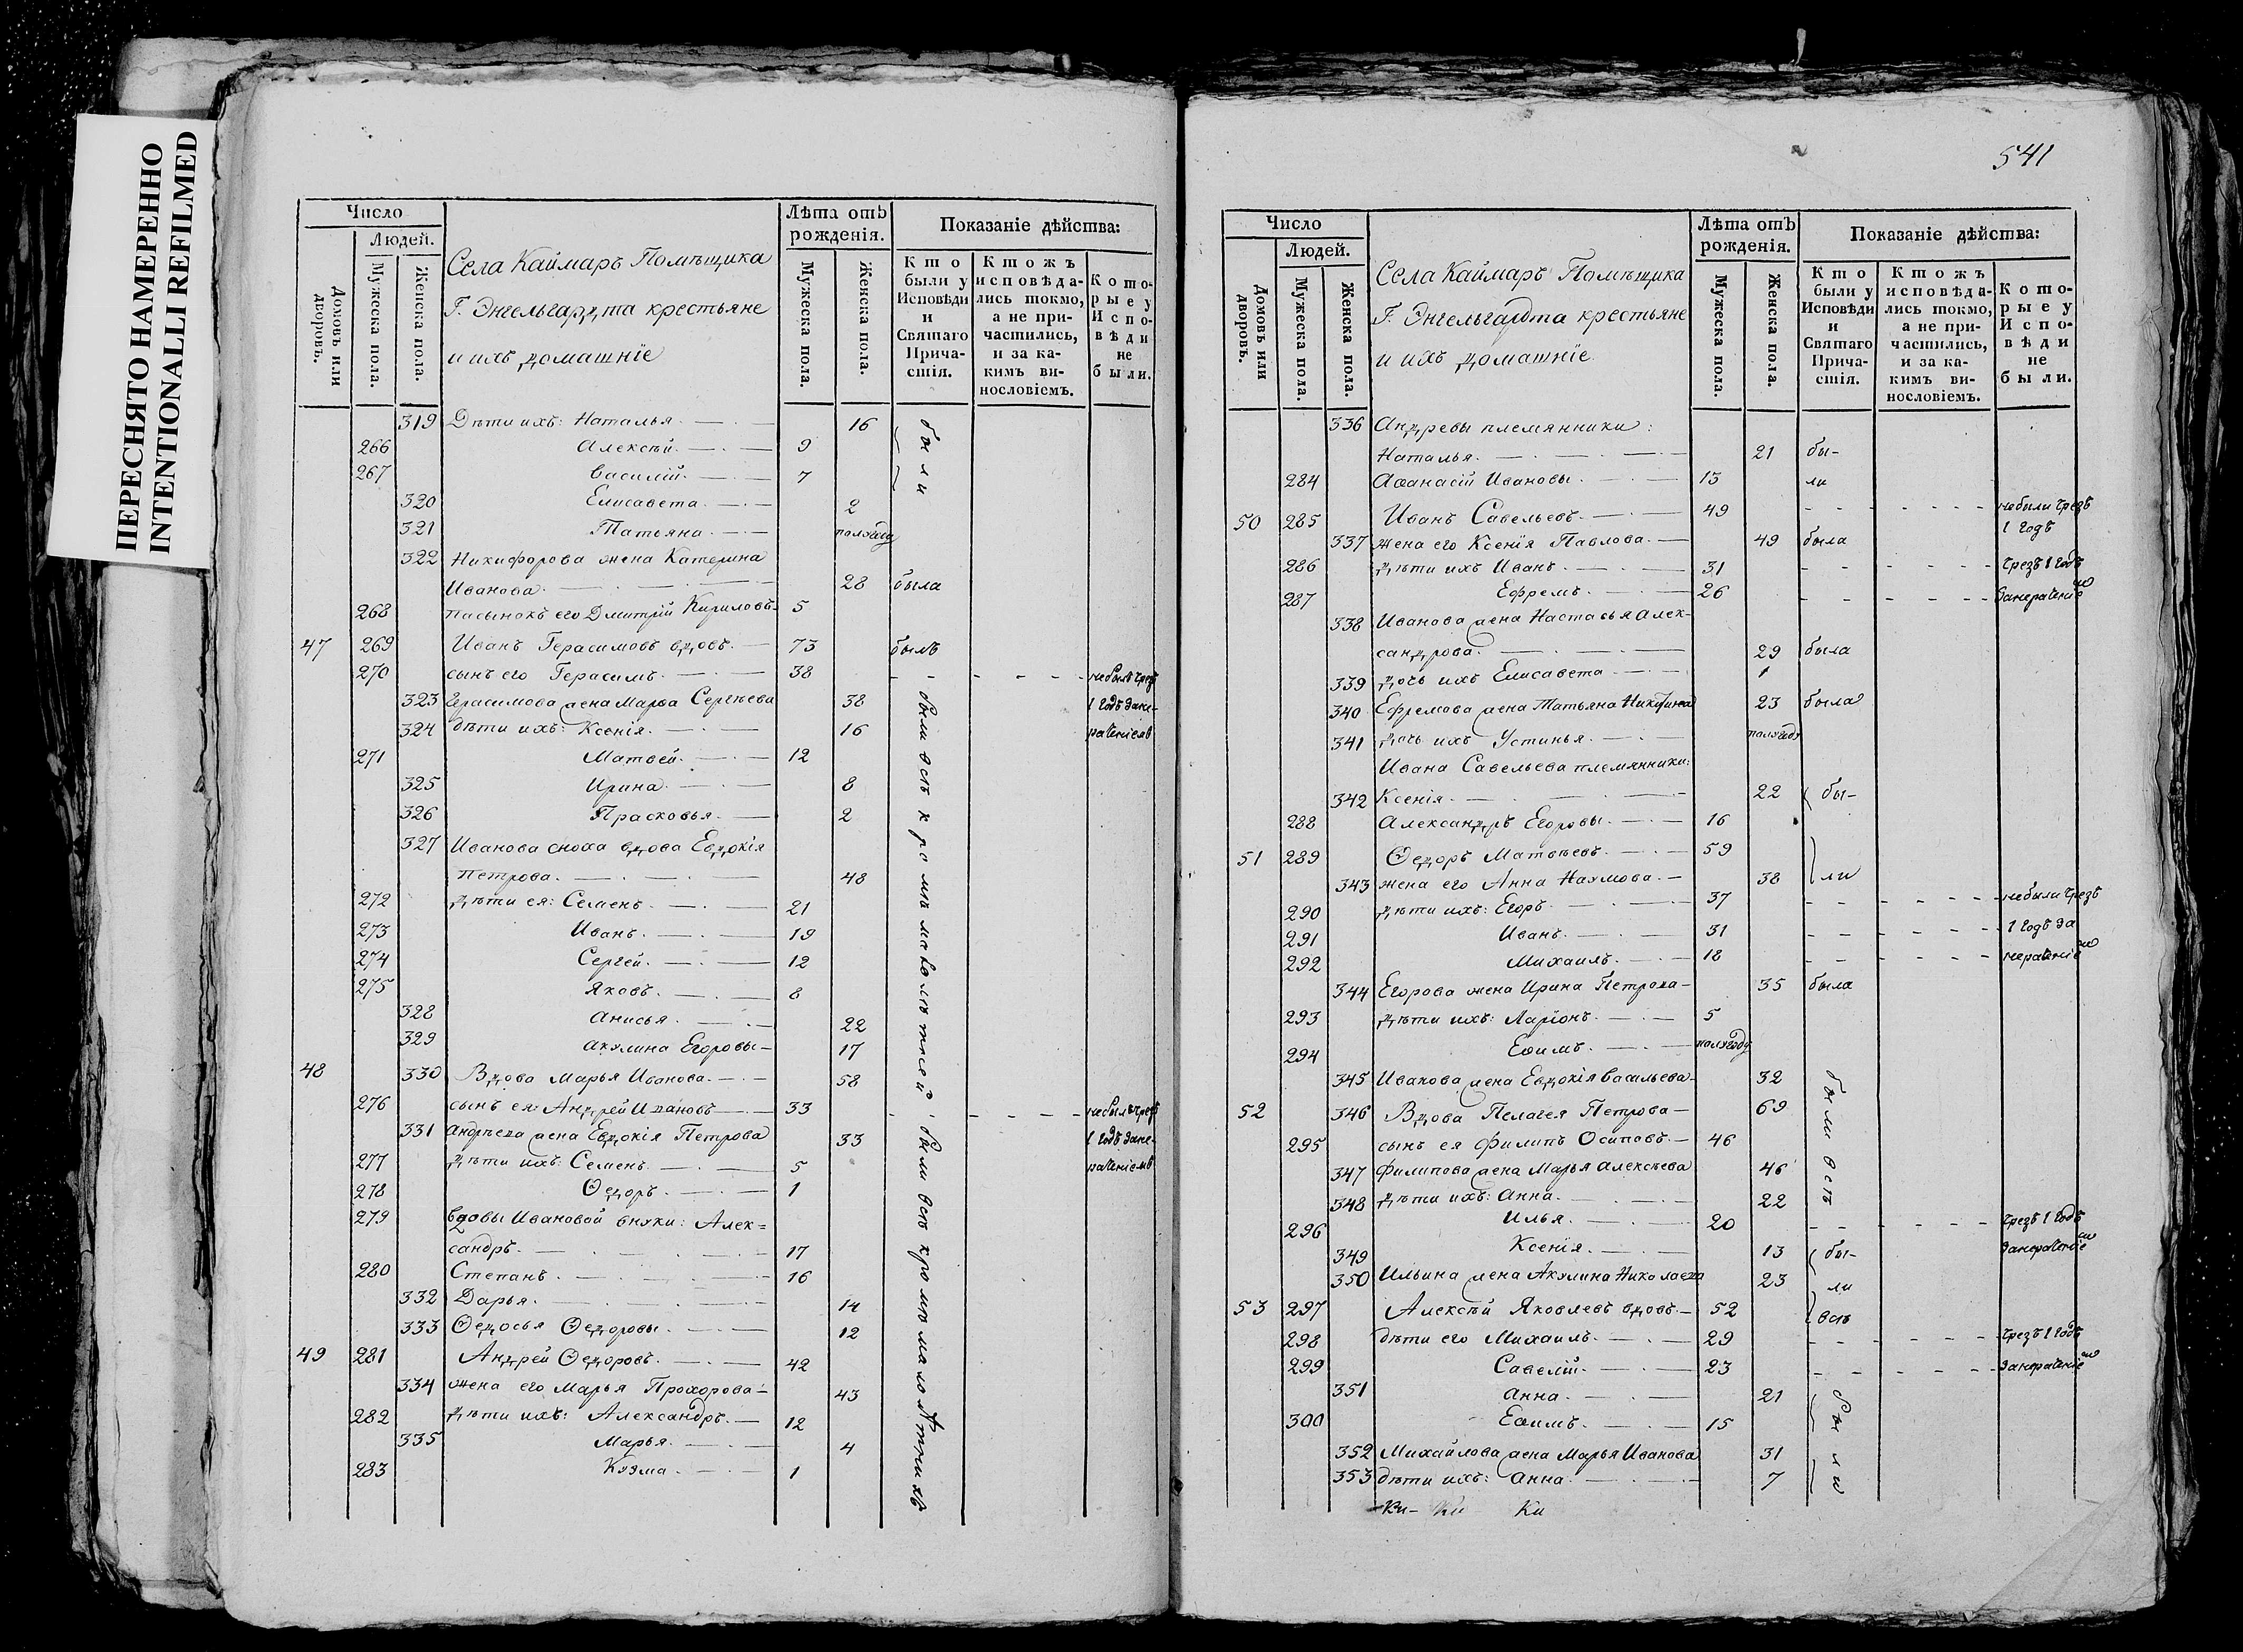 ПЕРЕСНЯТО НАМЕРЕННО
INTENTIONALLI REFILMED
Число
Людей.
Домовъ или дворовъ.
Мужеска пола.
Женска пола.
Села Каймаръ Помѣщика
Г. Энгельгардта крестьяне
и ихъ домашніе
Лѣта отъ рожденія.
Мужеска пола.
Женска пола.
Показаніе дѣйства:
Кто были у Исповѣди и Святаго Причастія.
Ктожъ исповѣдались токмо, а не причастились, и за какимъ винословіемъ.
Которые у Исповѣди не были.
319 Дѣти ихъ: Наталья. 16 были
266 Алексѣй. 9
267 Василій. 7
320 Елисавета. 2
321 Татьяна. полугоду
322 Никифорова жена Катерина
Иванова. 28 была
268 пасынокъ его Дмитрій Кириловъ 5
47 269 Иванъ Герасимовъ вдовъ. 73 былъ
270 сынъ его Герасимъ. 38 не былъ чрезъ
323 Герасимова жена Марѳа Сергѣева 38 1 годъ зане-
324 дѣти ихъ: Ксенія. 16 раченіемъ
были всѣ кромѣ малолѣтней
271 Матвей. 12
325 Ирина. 8
326 Прасковья. 2
327 Иванова сноха вдова Евдокія
Петрова. 48
272 дѣти ея: Семенъ. 21
273 Иванъ. 19
274 Сергей. 12
275 Яковъ. 8
328 Анисья. 22
329 Акулина Егоровы 17
48 330 Вдова Марья Иванова. 58
276 сынъ ея: Андрей Ивановъ 33 не былъ чрезъ
331 Андреева жена Евдокія Петрова 33 1 годъ зане-
277 дѣти ихъ: Семенъ. 5 раченіемъ
были всѣ кромѣ малолѣтнихъ
278 Ѳедоръ. 1
279 вдовы Ивановой внуки: Алек=
сандръ. 17
280 Степанъ. 16
332 Дарья. 14
333 Ѳедосья Ѳедоровы. 12
49 281 Андрей Ѳедоровъ. 42
334 жена его Марья Прохорова 43
282 дѣти ихъ: Александръ. 12
335 Марья. 4
283 Кузма. 1
541
Число
Людей.
Домовъ или дворовъ.
Мужеска пола.
Женска пола.
Села Каймаръ Помѣщика
Г. Энгельгардта крестьяне
и ихъ домашніе
Лѣта отъ рожденія.
Мужеска пола.
Женска пола.
Показаніе дѣйства:
Кто были у Исповѣди и Святаго Причастія.
Ктожъ исповѣдались токмо, а не причастились, и за какимъ винословіемъ.
Которые у Исповѣди не были.
336 Андревы племянники:
Наталья. 21 бы-
284 Аѳанасій Ивановы. 13 ли
50 285 Иванъ Савельевъ. 49 небыли чрезъ
337 жена его Ксенія Павлова. 49 была 1 годъ
286 дѣти ихъ Иванъ. 31 чрезъ 1 годъ
287 Ефремъ. 26 занераченіемъ
338 Иванова жена Настасья Алек-
сандрова. 29 была
339 дочь ихъ Елисавета 1
340 Ефремова жена Татьяна Никитина 23 была
341 дочь ихъ Устинья. полугоду
Ивана Савельева племянники:
342 Ксенія. 22 бы-
288 Александръ Егоровы. 16
51 289 Ѳедоръ Матвѣевъ. 59
343 жена его Анна Наумова. 38 ли
290 дѣти ихъ: Егоръ. 37 небыли чрезъ
291 Иванъ. 31 1 годъ за
292 Михаилъ. 18 нераченіемъ
344 Егорова жена Ирина Петрова 35 была
293 дѣти ихъ: Ларіонъ. 5
294 Еѳимъ. полугоду
345 Иванова жена Евдокія Васильева 32
52 346 Вдова Пелагея Петрова 69 были всѣ
295 сынъ ея Филипъ Осиповъ. 46
347 Филипова жена Марья Алексѣева 46
348 дѣти ихъ: Анна. 22
296 Илья. 20 чрезъ 1 годъ
349 Ксенія. 13 бы- занераченіем
350 Ильина жена Акулина Николаева 23 ли
53 297 Алексѣй Яковлевъ вдовъ. 52 всѣ
298 дѣти его Михаилъ. 29 чрезъ 1 годъ
299 Савелій. 23 занераченіем
351 Анна. 21 были
300 Еѳимъ. 15
352 Михайлова жена Марья Иванова 31
353 дѣти ихъ: Анна. 7
Ки- Ки Ки